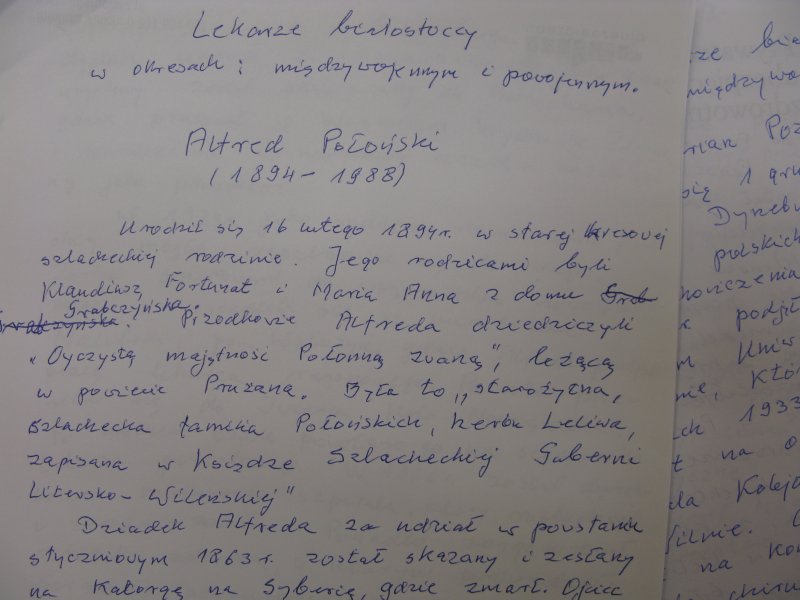 Lekarze białostoccy
w okresach: międzywojennym i powojennym.
Alfred Połoński
(1894-1988)
Urodził się 16 lutego 1894r. w starej kresowej
szlacheckiej rodzinie. Jego rodzicami byli
Klaudiusz Fortunat i Maria Anna z domu Grab
Grabczyńska.
Przodkowie Alfreda dziedziczyli
"Oyczystą majętność Połonną zwaną", leżącą
w powiecie Prużana. Była to "starożytna,
szlachecka familia Połońskich, herbu Leliwa,
zapisana w Księdze Szlacheckiej Guberni
Litewsko-Wileńskiej"
Dziadek Alfreda za udział w powstaniu
styczniowym 1863 r. został skazany i zesłany
na Katorgę na Syberię, gdzie zmarł. Ojciec
międzywo
się 1 gru
polskich
podję
Univ
nie, któ
1933
na o
Kolej
Wilnie.
na Kon